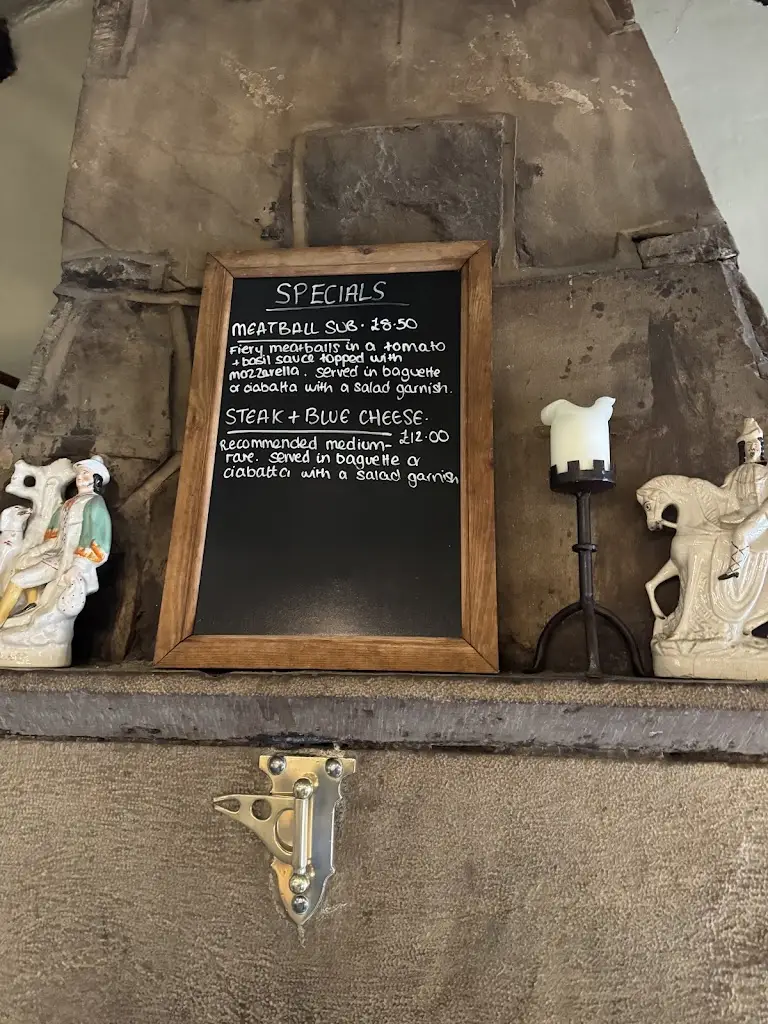 SPECIALS
MEATBALL SUB. £8.50
Fiery meatballs in a tomato
+ basil sauce topped with
mozzarella. served in baguette
or ciabatta with a salad garnish.
STEAK + BLUE CHEESE.
£12.00
Recommended medium-
rare. served in baguette or
ciabatta with a salad garnish